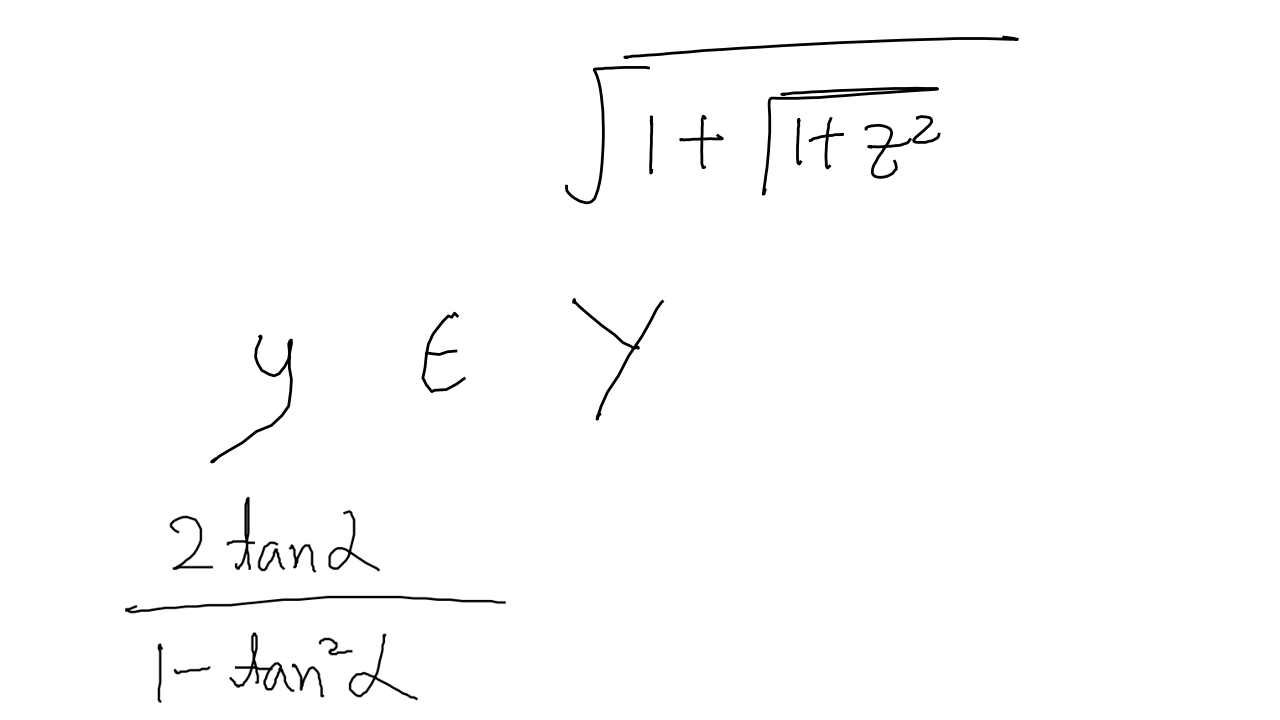 \sqrt{1+\sqrt{1+z^2}}
y \in Y
\frac{2\tan\alpha}{1-\tan^2\alpha}